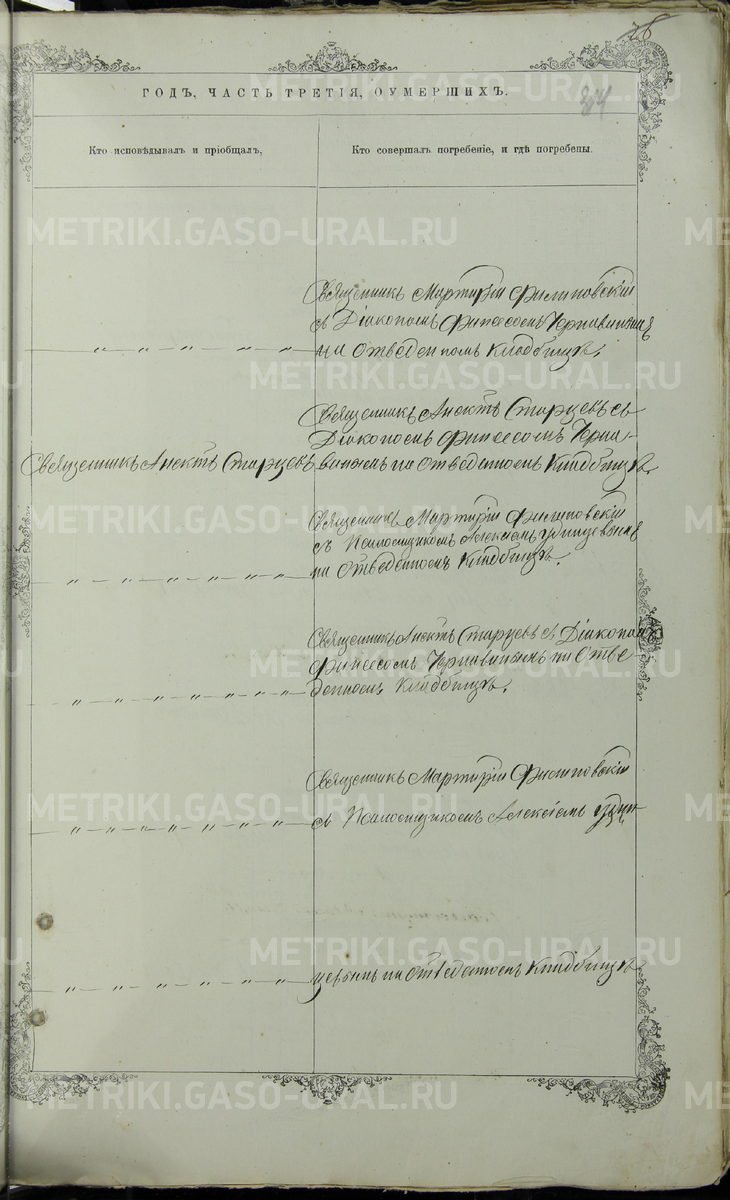 28
ГОДЪ, ЧАСТЬ ТРЕТІЯ, ОУМЕРШИХЪ.
Кто исповѣдывалъ и пріобщалъ,
Кто совершалъ погребеніе, и гдѣ погребены.
Священникъ Мартирій Филиповскій
съ Діакономъ Финеесомъ
на отведенномъ кладбищѣ.
Священникъ Анектъ Старцевъ съ
Діакономъ Финеесомъ
Священникъ Анектъ Старцевъ
на отведенномъ кладбищѣ.
Священникъ Мартирій Филиповскій
съ Псаломщикомъ Алексіемъ
на отведенномъ кладбищѣ.
Священникъ Анектъ Старцевъ съ Діакономъ
Финеесомъ на отве-
денномъ кладбищѣ.
Священникъ Мартирій Филиповскій
съ Псаломщикомъ Алексіемъ
на отведенномъ кладбищѣ
METRIKI.GASO-URAL.RU